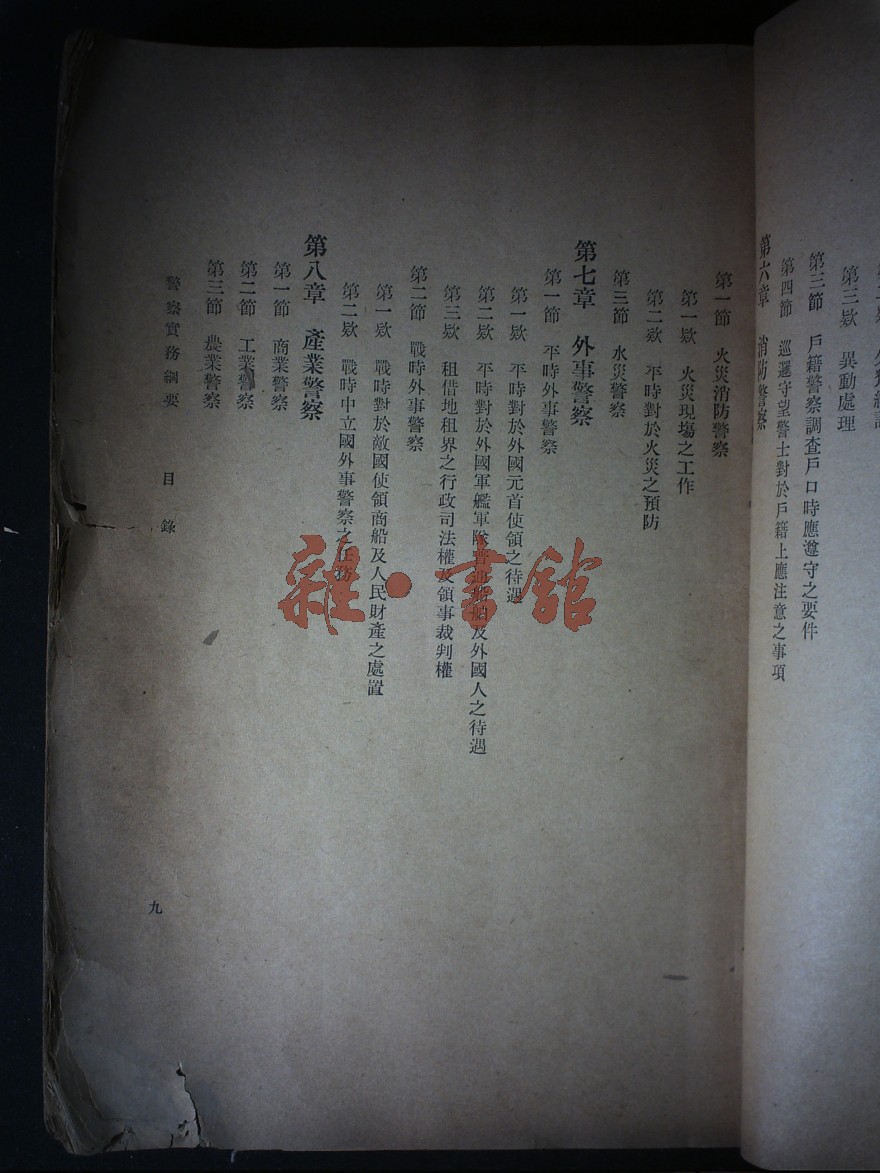 第三欵 異動處理
第三節 戶籍警察調查戶口時應遵守之要件
第四節 巡邏守望警士對於戶籍上應注意之事項
第六章 消防警察
第一節 火災消防警察
第一欵 火災現場之工作
第二欵 平時對於火災之預防
第三節 水災警察
第七章 外事警察
第一節 平時外事警察
第一欵 平時對於外國元首使領之待遇
第二欵 平時對於外國軍艦軍隊普通船舶及外國人之待遇
第三欵 租借地租界之行政司法權及領事裁判權
第二節 戰時外事警察
第一欵 戰時對於敵國使領商船及人民財產之處置
第二欵 戰時中立國外事警察之任務
第八章 產業警察
第一節 商業警察
第二節 工業警察
第三節 農業警察
警察實務綱要 目錄
九
雜·書館